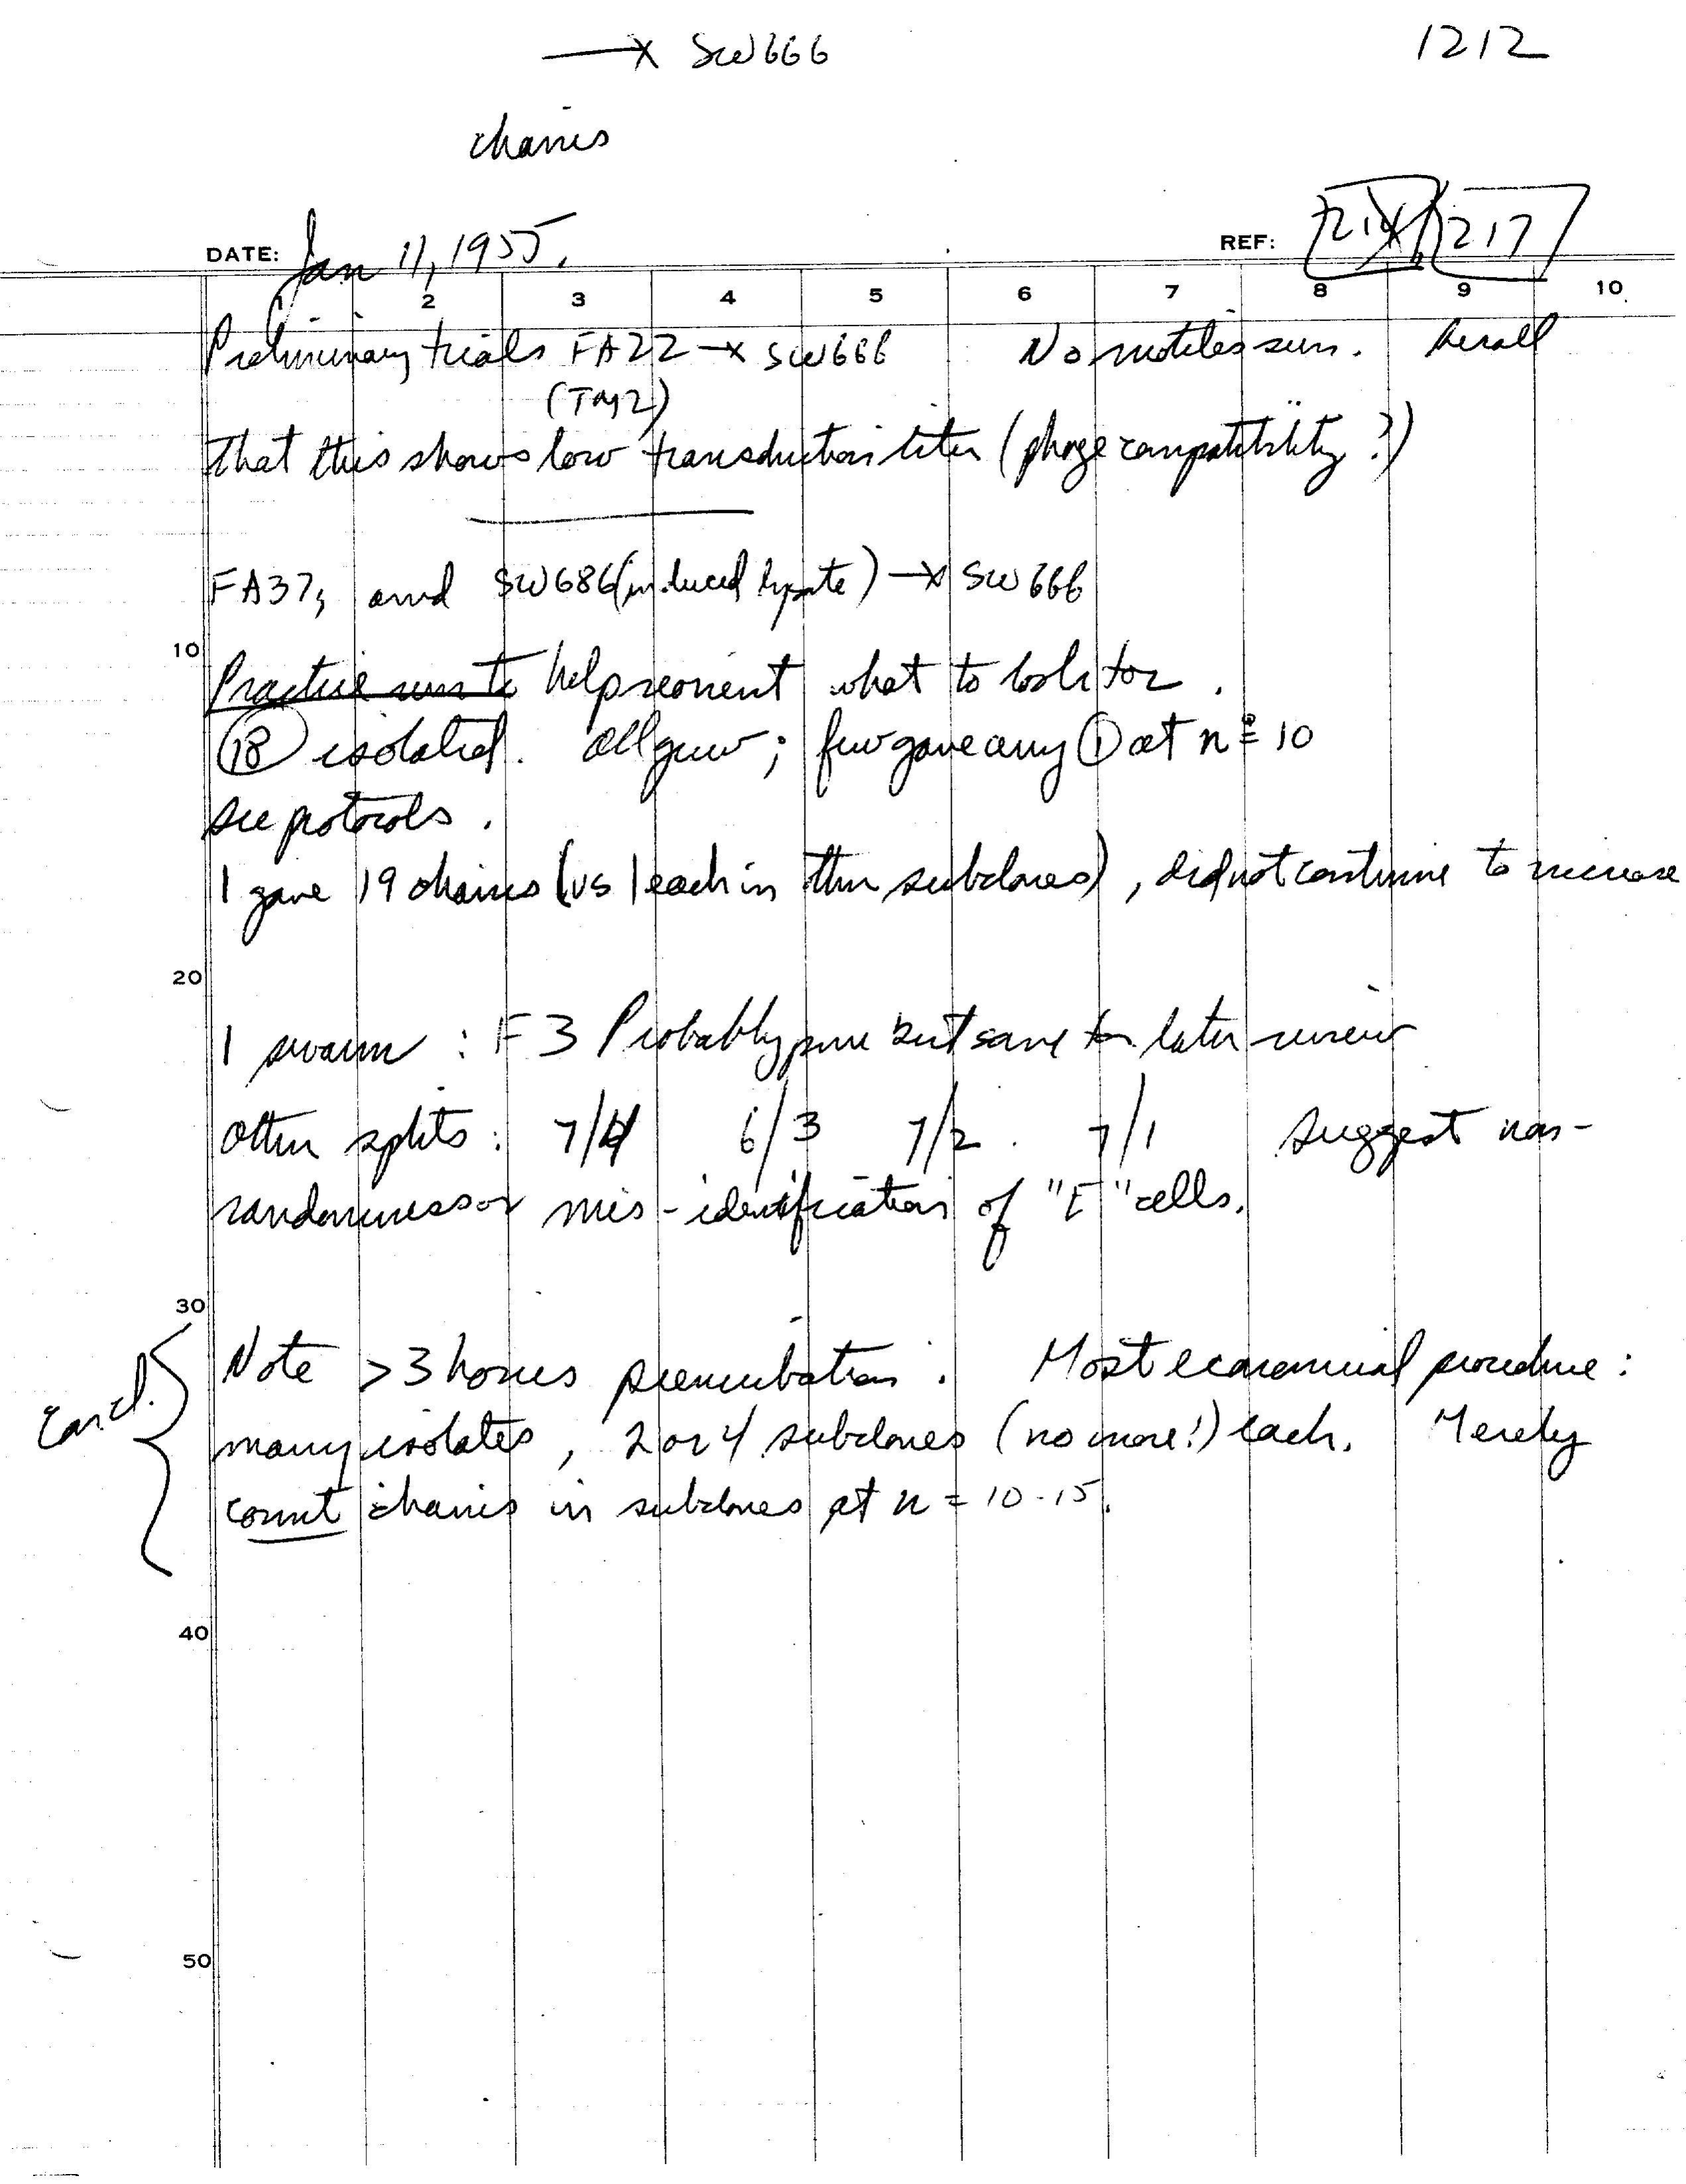 —x SW666 1212
chains
DATE: Jan 11, 1955. REF: 1217
1 2 3 4 5 6 7 8 9 10
Preliminary trials FA22 —x SW666 No motiles seen. Recall
(TM2)
that this shows low transduction titer (phage compatibility?)
FA37, and SW686 (induced lysate) —x SW666
10
Practice run to help reorient what to look for.
18 isolated. All grew; few gave any 1 at n = 10
See protocols.
1 gave 19 chains (vs 1 each in other subclones), did not continue to increase
20
1 swarm : F3 Probably pure but save for later review
Other splits: 7/4 6/3 7/2 . 7/1 Suggest non-
randomness or mis-identification of "E" cells.
30
Concl.
Note >3 hours preincubation. Most economical procedure:
many isolates, 2 or 4 subclones (no more!) each. Merely
count chains in subclones at n = 10-15.
40
50